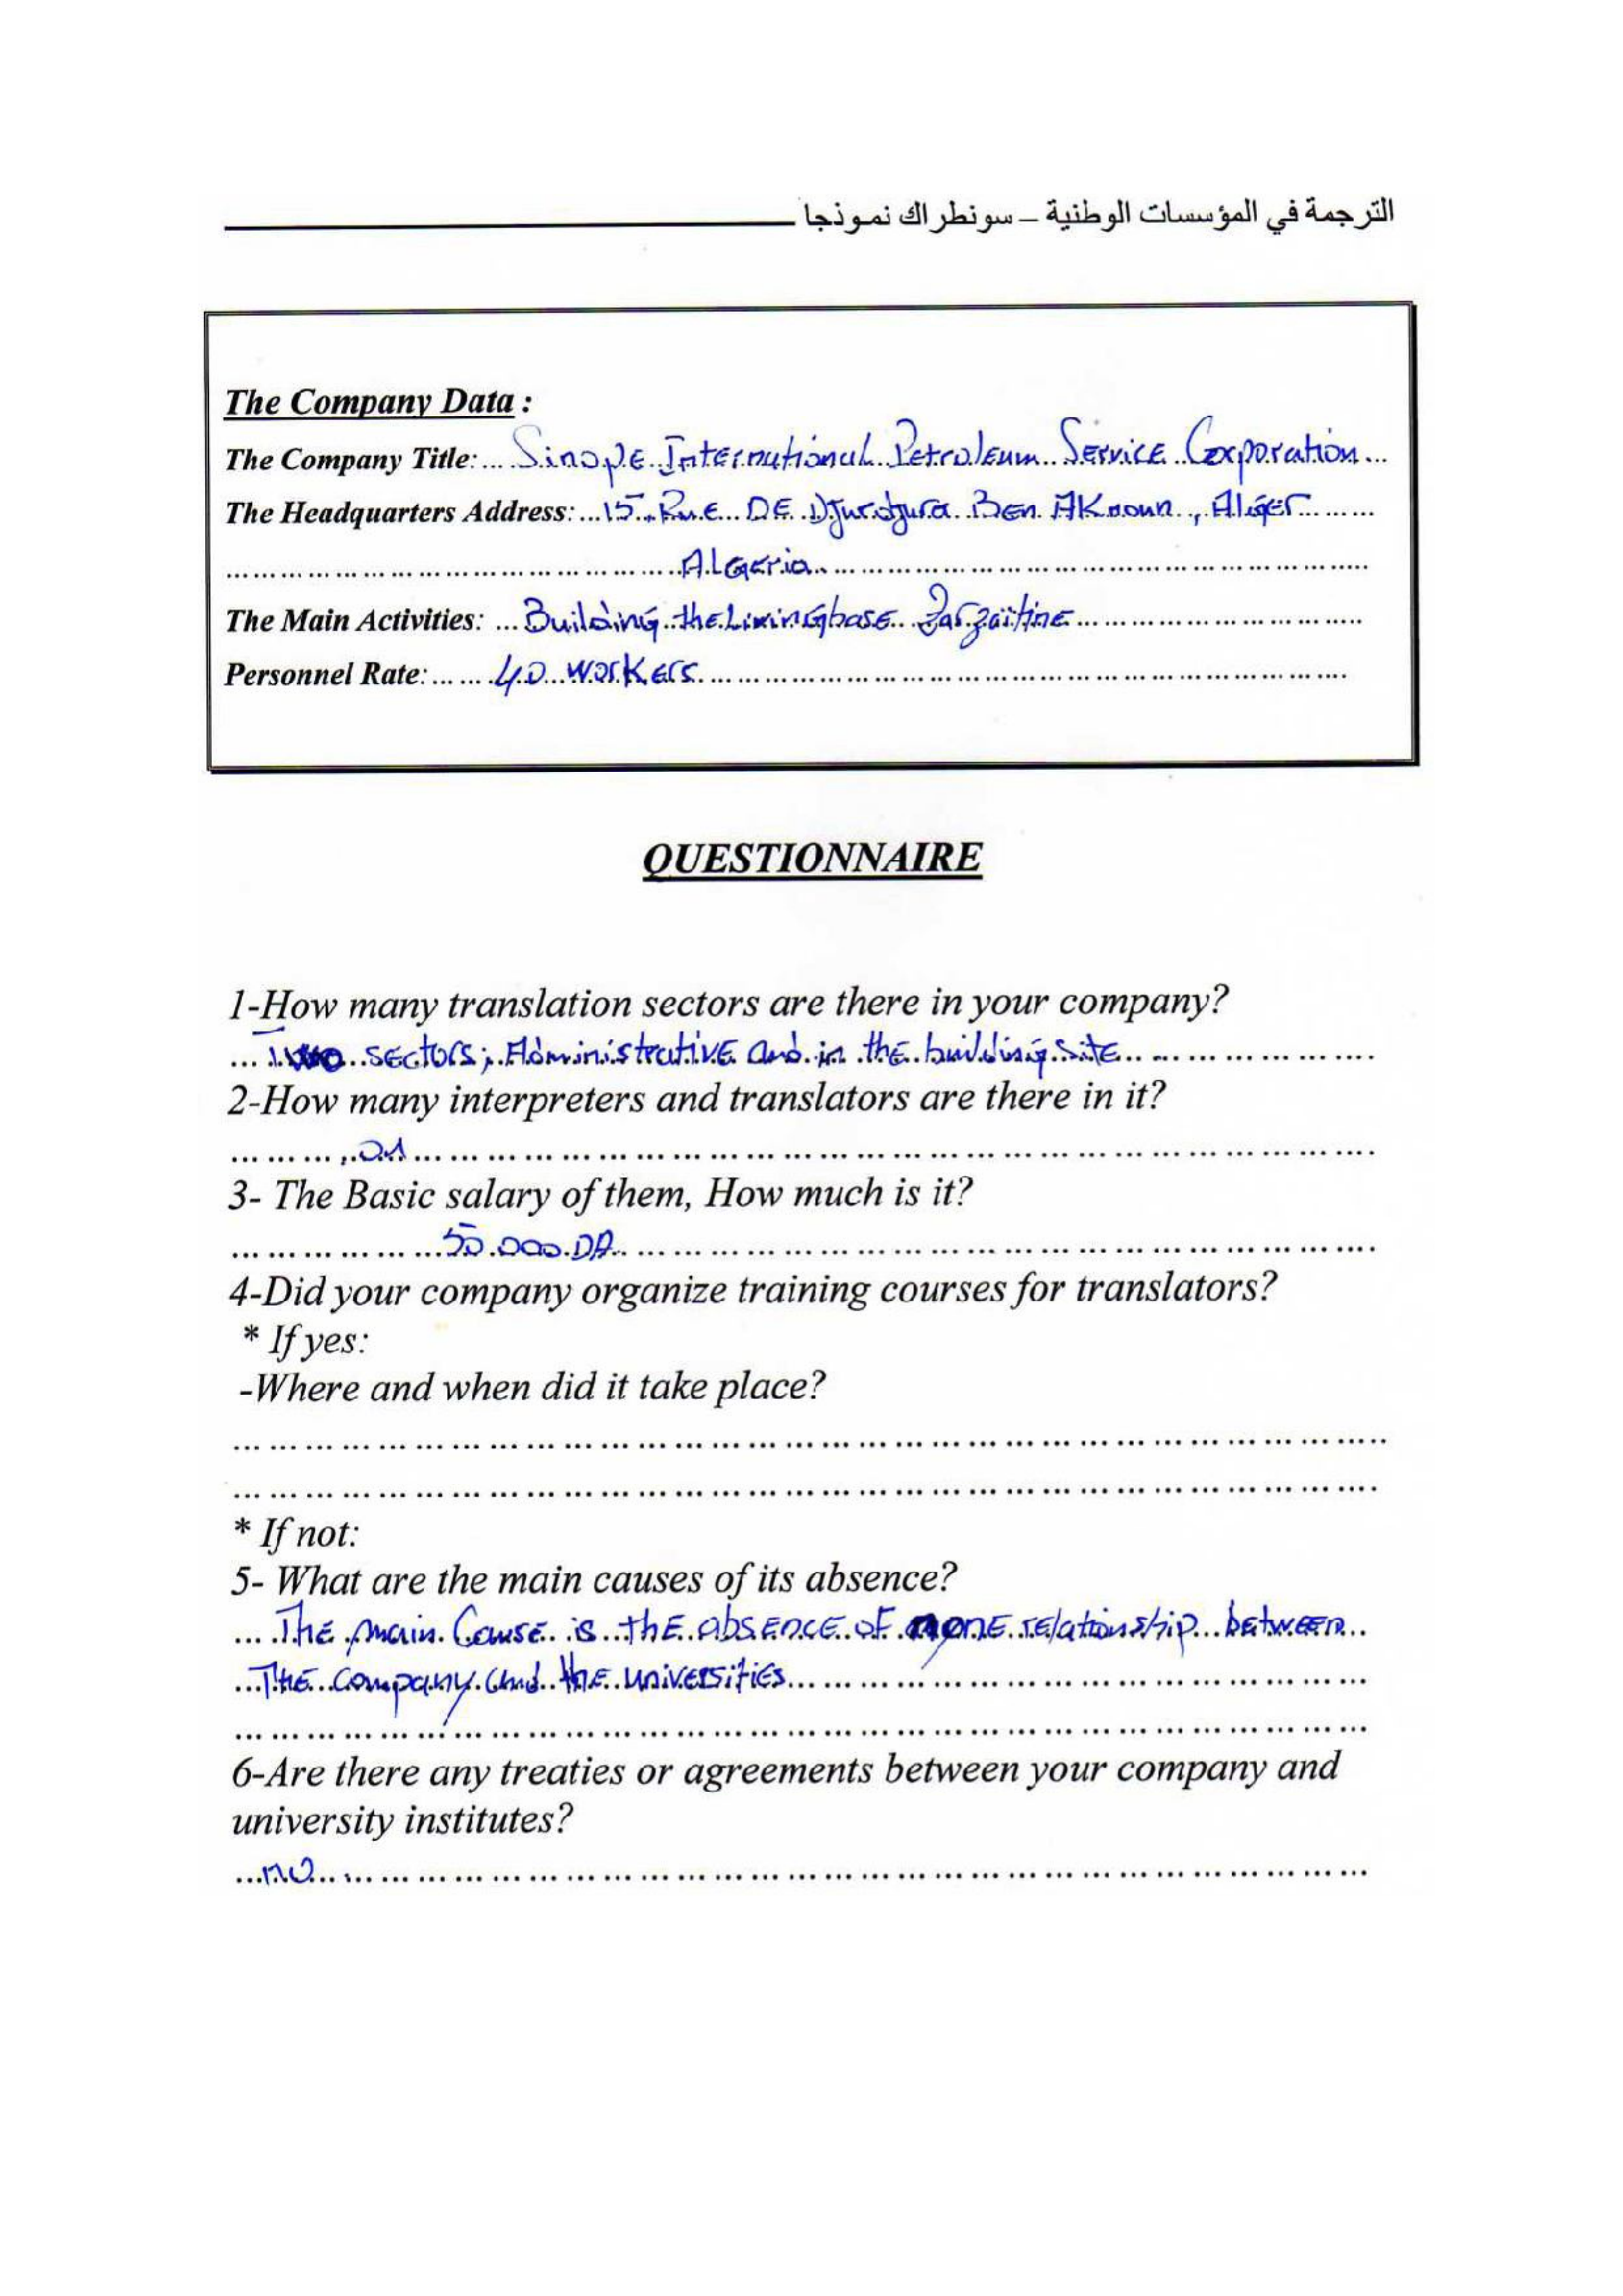 الترجمة في المؤسسات الوطنية – سونطراك نموذجا
The Company Data :
The Company Title: Sinope International Petroleum Service Corporation
The Headquarters Address: 15 Rue DE Djurdjura Ben AKnoun, Alger
ALGeria
The Main Activities: Building the Livingbase Zarzaïtine
Personnel Rate: 40 workers
QUESTIONNAIRE
1-How many translation sectors are there in your company?
Two sectors; Administrative and in the building site
2-How many interpreters and translators are there in it?
01
3- The Basic salary of them, How much is it?
50.000 DA
4-Did your company organize training courses for translators?
* If yes:
-Where and when did it take place?
* If not:
5- What are the main causes of its absence?
The main Cause is the absence of relationship between
The company and the universities
6-Are there any treaties or agreements between your company and
university institutes?
no